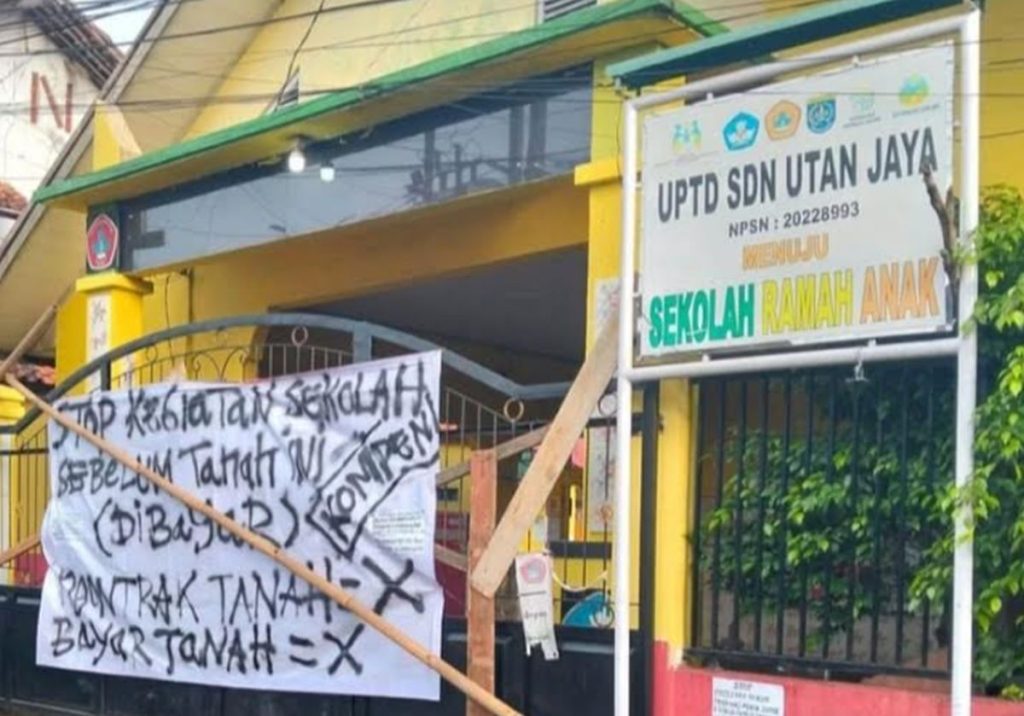 UPTD SDN UTAN JAYA
NPSN : 20228993
MENUJU
SEKOLAH RAMAH ANAK
STOP KEGIATAN SEKOLAH
SEBELUM TANAH INI
(DIBAYAR)
KOMPEN
KONTRAK TANAH = X
BAYAR TANAH = X